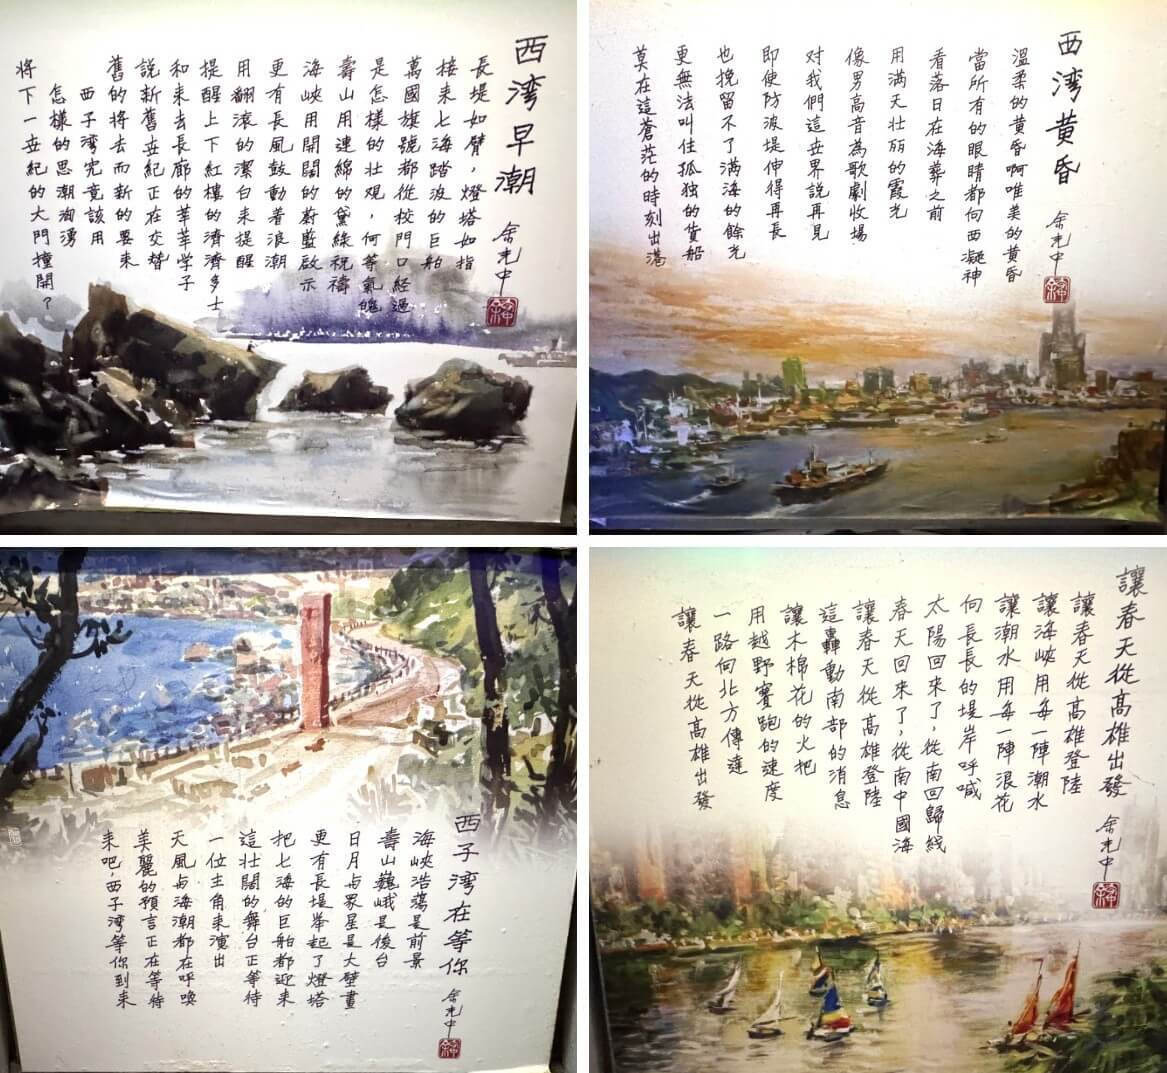 西灣早潮
余光中
長堤如臂，燈塔如指
接來七海踏波的巨舶
萬國旗號都從校門口經過
是怎樣的壯觀，何等氣魄
壽山用連綿的黛綠祝禱
海峽用開闊的蔚藍啟示
更有長風鼓動着浪潮
用翻滾的潔白來提醒
提醒上下紅樓的濟濟多士
和來去長廊的莘莘學子
說新舊世紀正在交替
舊的將去而新的要來
西子灣究竟該用
怎樣的思潮洶湧
將下一世紀的大門撞開？
西灣黃昏
余光中
溫柔的黃昏啊唯美的黃昏
當所有的眼睛都向西凝神
看落日在海葬之前
用滿天壯麗的霞光
像男高音為歌劇收場
對我們這世界說再見
即使防波堤伸得再長
也挽留不了滿海的餘光
更無法叫住孤獨的貨船
莫在這蒼茫的時刻出港
西子灣在等你
余光中
海峽浩蕩是前景
壽山巍峨是後台
日月與眾星是大壁畫
更有長堤舉起了燈塔
把七海的巨舶都迎來
這壯闊的舞台正等待
一位主角來演出
天風與海潮都在呼喚
美麗的預言正在等待
來吧，西子灣等你到來
讓春天從高雄出發
余光中
讓春天從高雄登陸
讓海峽用每一陣潮水
讓潮水用每一陣浪花
向長長的堤岸呼喊
太陽回來了，從南回歸線
春天回來了，從南中國海
讓春天從高雄登陸
這轟動南部的消息
讓木棉花的火把
用越野賽跑的速度
一路向北方傳達
讓春天從高雄出發